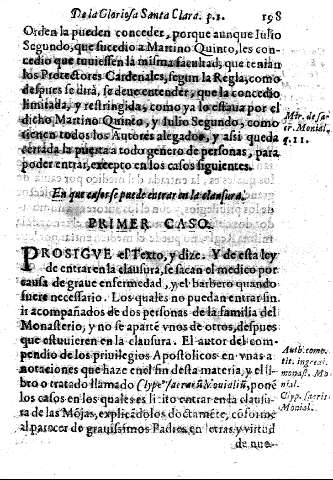 De la Gloriosa Santa Clara. p.1. 198
Orden la pueden conceder, porque aunque Iulio
Segundo, que sucedio a Martino Quinto, les con-
cedio que tuviessen la misma facultad, que tenian
los Protectores Cardenales, segun la Regla, como
despues se dirà, se deve entender, que la concedio
limitada, y restringida, como ya lo estava por el
dicho Martino Quinto, y Iulio Segundo, como
tienen todos los Autores alegados, y assi queda
cerrada la puerta a todo genero de personas, para
poder entrar, excepto en los casos siguientes.
Mir. de sa-
cr. Monial.
q.11.
En que casos se puede entrar en la clausura.
PRIMER CASO.
PROSIGVE el Texto, y dize. Y de esta ley
de entrar en la clausura, se sacan el medico por
causa de grave enfermedad, y el barbero quando
fuere necessario. Los quales no puedan entrar sin
ir acompañados de dos personas de la familia del
Monasterio, y no se aparte vnos de otros, despues
que estuvieren en la clausura. El autor del com-
pendio de los privilegios Apostolicos en vnas a-
notaciones que haze en el fin desta materia, y el li-
bro o tratado llamado Clype° sacrarũ Monialiũ, pone
los casos en los quales es licito entrar en la clausu-
ra de las Mõjas, explicãdolos doctamẽte, cõforme
al parecer de gravissimos Padres, en letras, y virtud
de nue-
Auth. come.
tit. ingredi
monast. Mo-
nial.
Clyp. sacris
Monial.